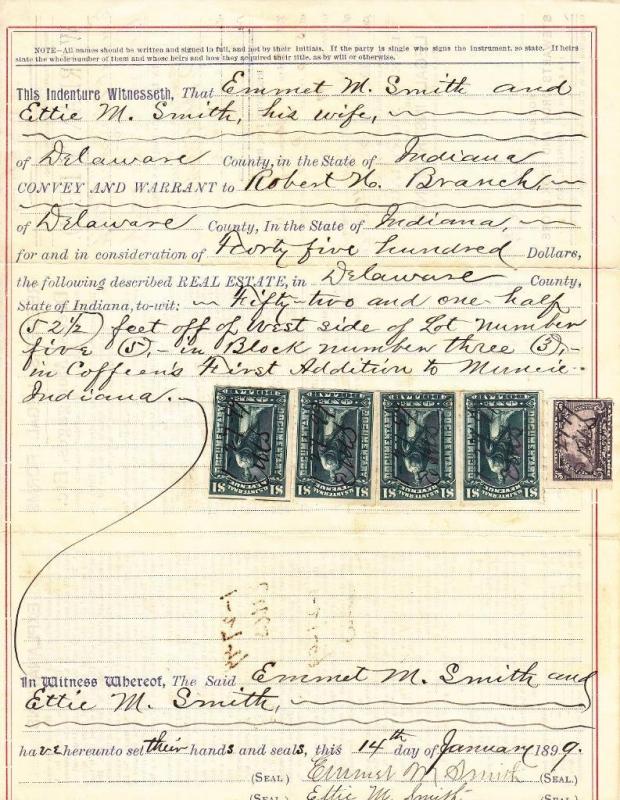 NOTE—All names should be written and signed in full, and not by their initials. If the party is single who signs the instrument, so state. If heirs
state the whole number of them and whose heirs and how they acquired their title, as by will or otherwise.
This Indenture Witnesseth, That Emmet M. Smith and
Ettie M. Smith, his wife,
of Delaware County, in the State of Indiana
CONVEY AND WARRANT to Robert N. Branch,
of Delaware County, In the State of Indiana,
for and in consideration of Forty five hundred Dollars,
the following described REAL ESTATE, in Delaware County,
State of Indiana, to-wit: Fifty-two and one-half
(52½) feet off of West side of Lot number
five (5),- in Block number three (3),-
in Coffeens First Addition to Muncie-
Indiana.
DOCUMENTARY
U.S. INTERNAL REVENUE
$1
DOCUMENTARY
U.S. INTERNAL REVENUE
$1
DOCUMENTARY
U.S. INTERNAL REVENUE
$1
DOCUMENTARY
U.S. INTERNAL REVENUE
$1
In Witness Whereof, The Said Emmet M. Smith and
Ettie M. Smith,
have hereunto set their hands and seals, this 14th day of January 1899.
(SEAL) Emmet M Smith (SEAL)
(SEAL) Ettie M. Smith (SEAL)